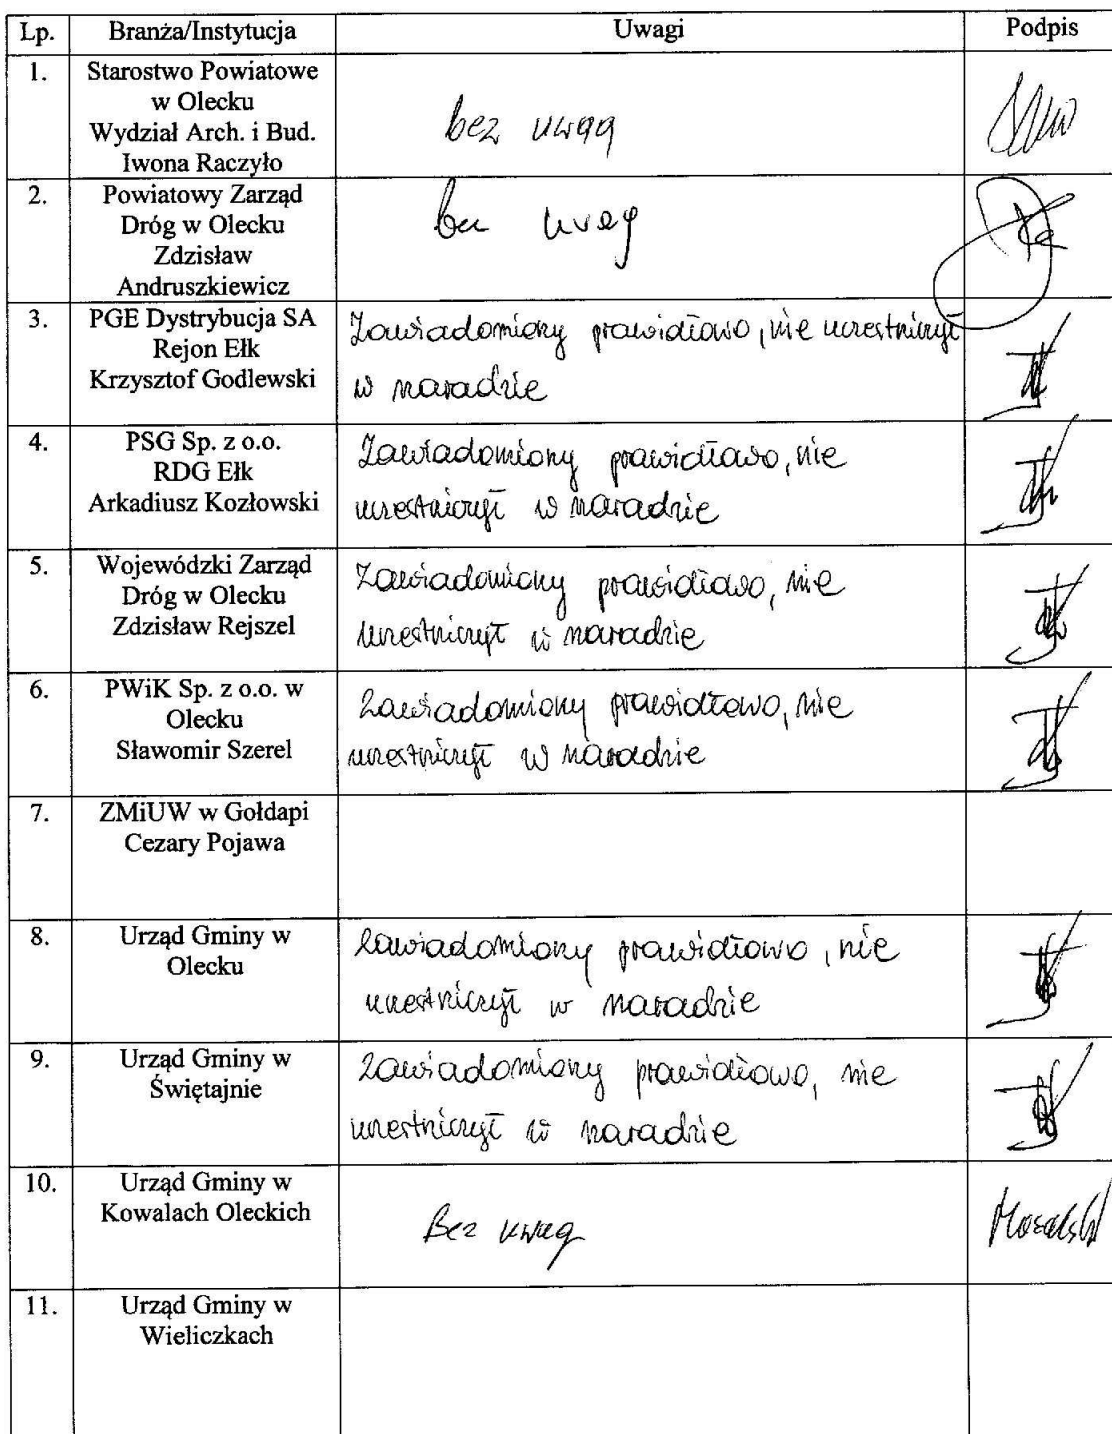 Lp. Branża/Instytucja Uwagi Podpis
1. Starostwo Powiatowe
w Olecku
Wydział Arch. i Bud.
Iwona Raczyło
bez uwag
2. Powiatowy Zarząd
Dróg w Olecku
Zdzisław
Andruszkiewicz
bez uwag
3. PGE Dystrybucja SA
Rejon Ełk
Krzysztof Godlewski
Zawiadomiony prawidłowo, nie uczestniczył
w naradzie
4. PSG Sp. z o.o.
RDG Ełk
Arkadiusz Kozłowski
Zawiadomiony prawidłowo, nie
uczestniczył w naradzie
5. Wojewódzki Zarząd
Dróg w Olecku
Zdzisław Rejszel
Zawiadomiony prawidłowo, nie
uczestniczył w naradzie
6. PWiK Sp. z o.o. w
Olecku
Sławomir Szerel
Zawiadomiony prawidłowo, nie
uczestniczył w naradzie
7. ZMiUW w Gołdapi
Cezary Pojawa
8. Urząd Gminy w
Olecku
Zawiadomiony prawidłowo, nie
uczestniczył w naradzie
9. Urząd Gminy w
Świętajnie
Zawiadomiony prawidłowo, nie
uczestniczył w naradzie
10. Urząd Gminy w
Kowalach Oleckich
Bez uwag
11. Urząd Gminy w
Wieliczkach